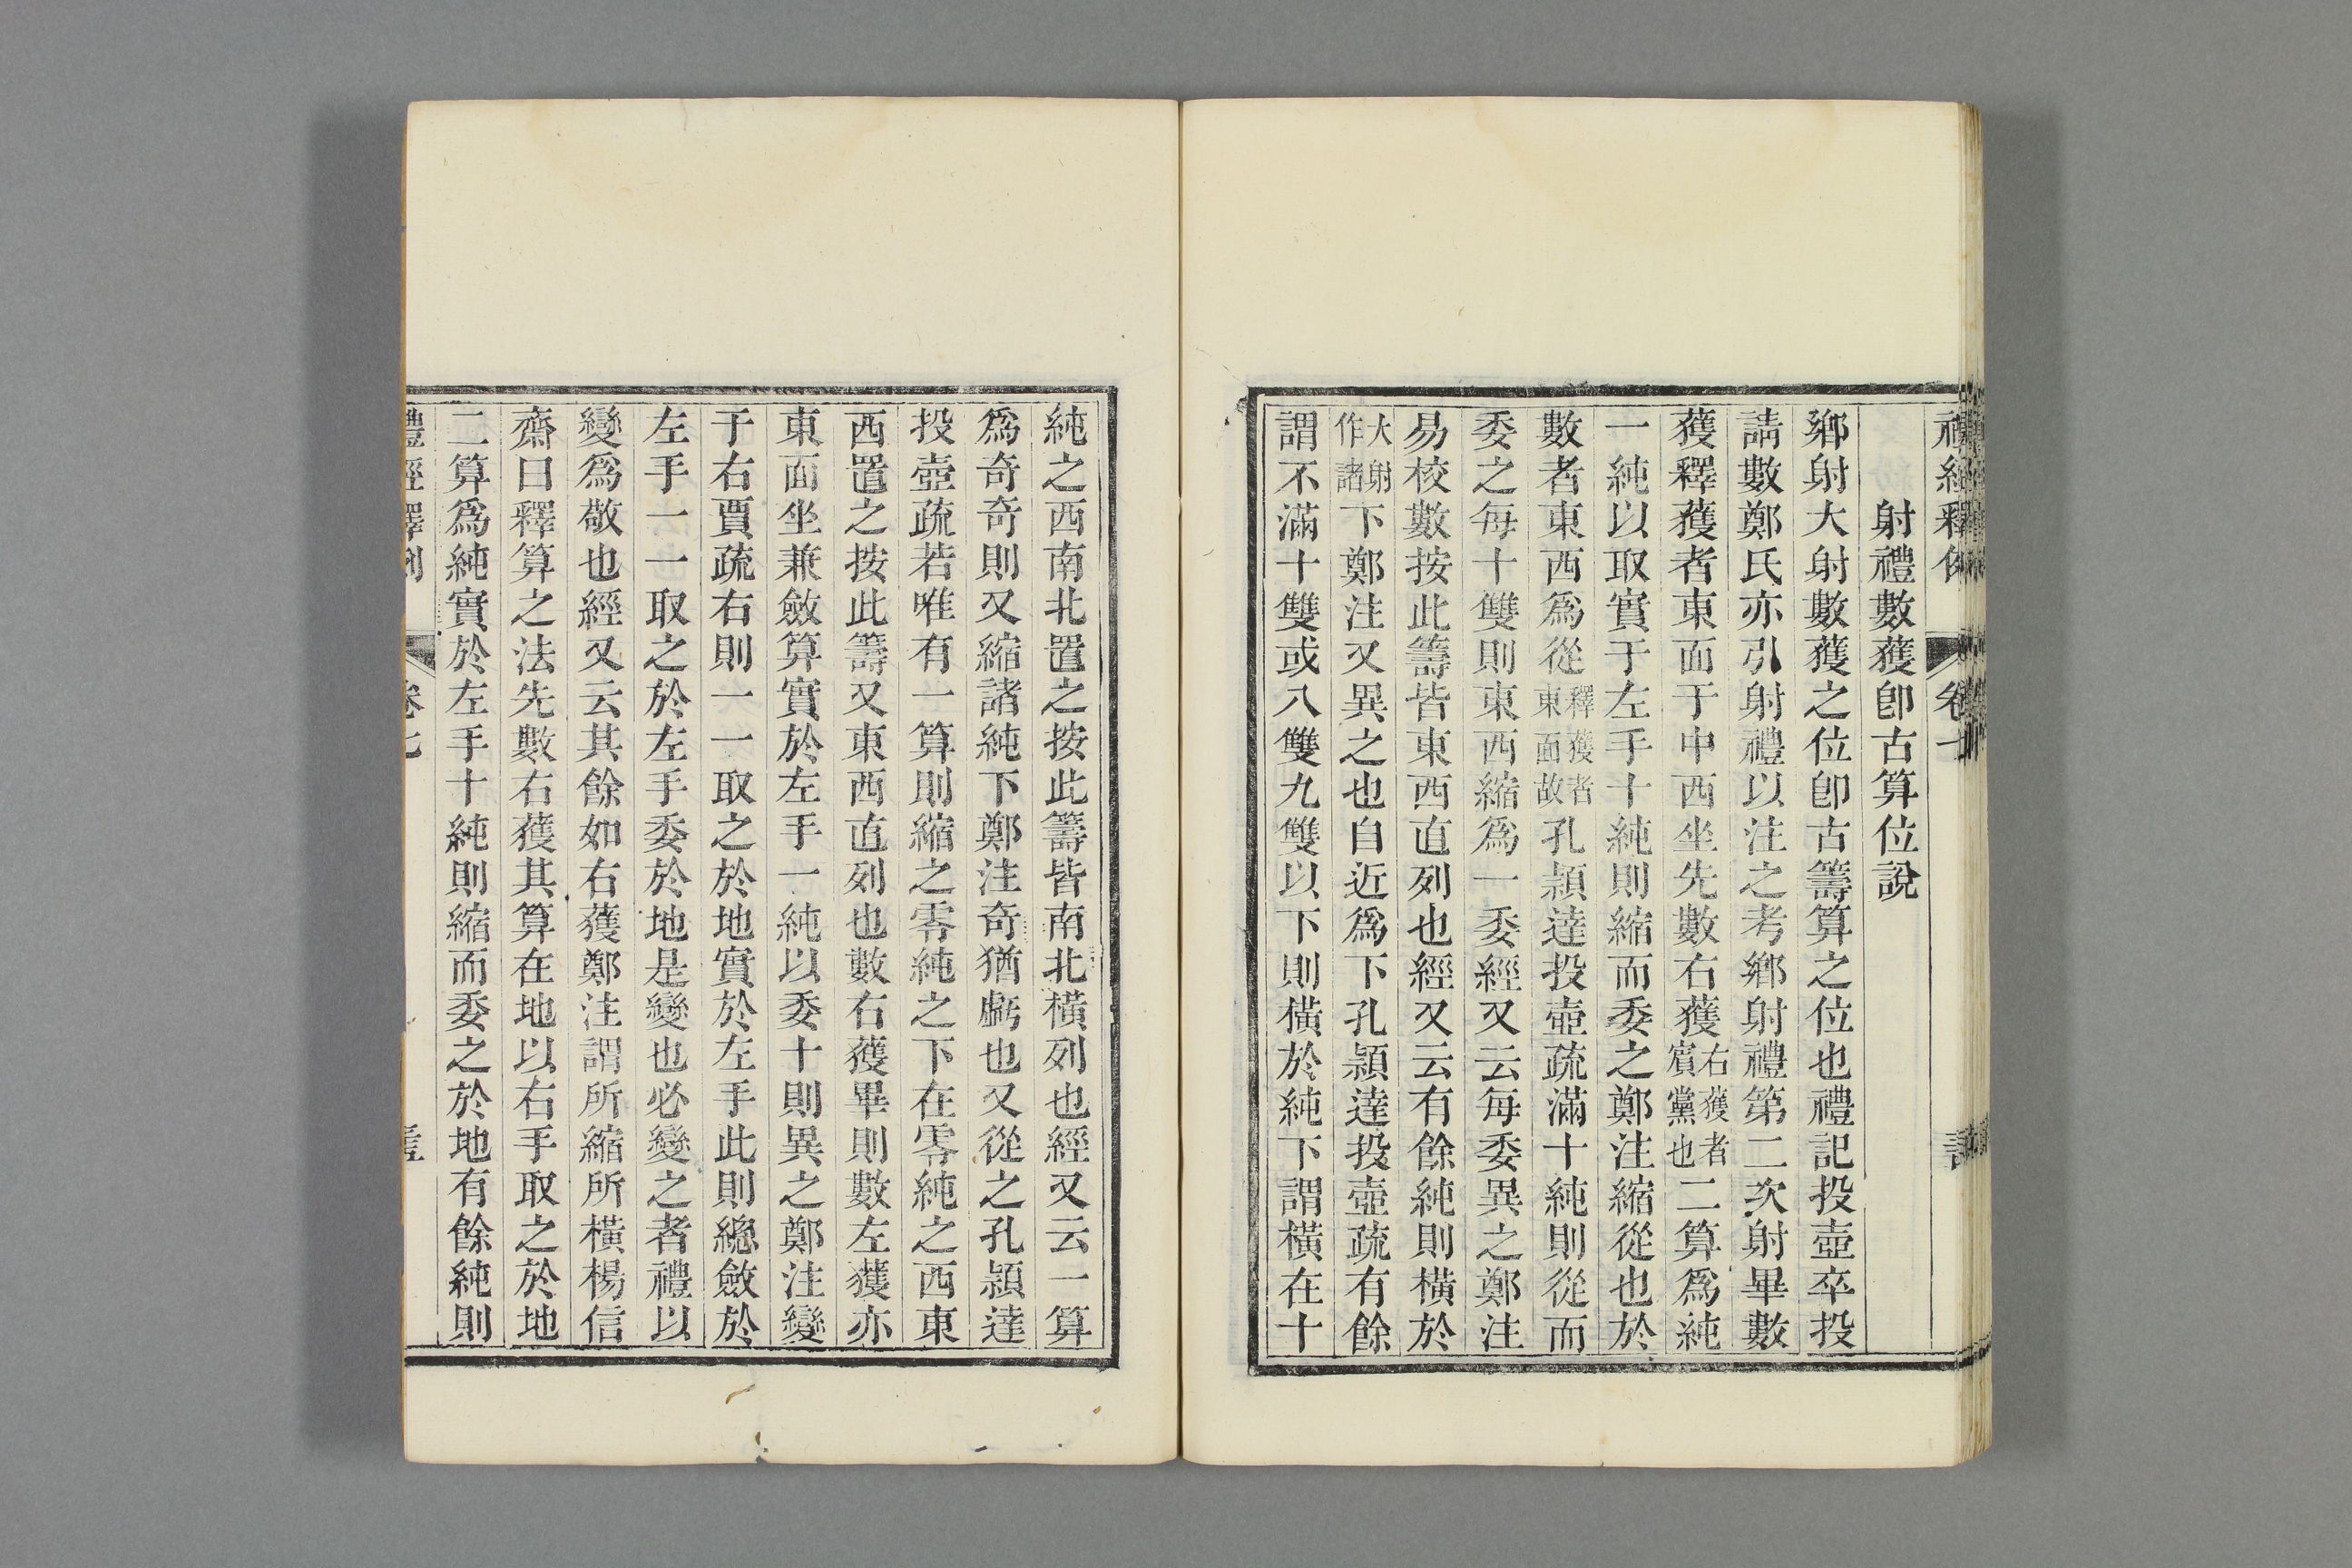 禮經釋例 卷七
射禮數獲卽古算位說
鄉射大射數獲之位卽古籌算之位也禮記投壺卒投
請數鄭氏亦引射禮以注之考鄉射禮第二次射畢數
獲釋獲者東面于中西坐先數右獲右獲者賓黨也二算爲純
一純以取實于左手十純則縮而委之鄭注縮從也於
數者東西爲從釋獲者東面故孔頴達投壺疏滿十純則從而
委之每十雙則東西縮爲一委經又云每委異之鄭注
易校數按此籌皆東西直列也經又云有餘純則橫於
下大射作諸下鄭注又異之也自近爲下孔頴達投壺疏有餘
謂不滿十雙或八雙九雙以下則橫於純下謂橫在十
純之西南北置之按此籌皆南北橫列也經又云一算
爲奇奇則又縮諸純下鄭注奇猶虧也又從之孔頴達
投壺疏若唯有一算則縮之零純之下在零純之西東
西置之按此籌又東西直列也數右獲畢則數左獲亦
東面坐兼斂算實於左手一純以委十則異之鄭注變
于右賈疏右則一一取之於地實於左手此則總斂於
左手一一取之於左手委於地是變也必變之者禮以
變爲敬也經又云其餘如右獲鄭注謂所縮所橫楊信
齋曰釋算之法先數右獲其算在地以右手取之於地
二算爲純實於左手十純則縮而委之於地有餘純則
禮經釋例 卷七